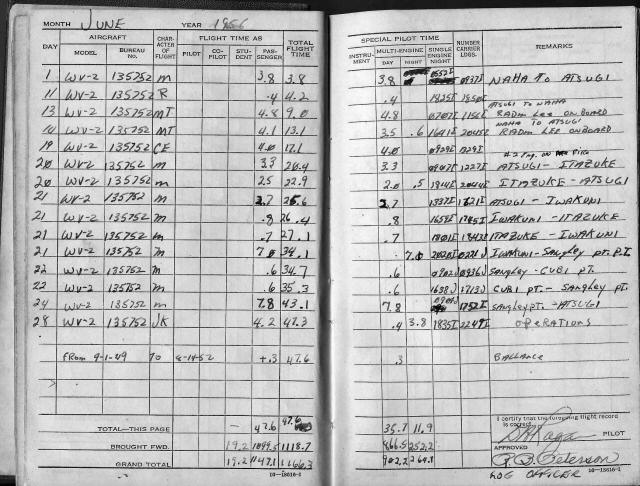 MONTH JUNE YEAR 1956
DAY AIRCRAFT MODEL BUREAU NO. CHARACTER OF FLIGHT FLIGHT TIME AS PILOT CO-PILOT STUDENT PASSENGER TOTAL FLIGHT TIME
1 WV-2 135752 M 3.8 3.8
11 WV-2 135752 R .4 4.2
13 WV-2 135752 MT 4.8 9.0
14 WV-2 135752 MT 4.1 13.1
19 WV-2 135752 CE 4.0 17.1
20 WV-2 135752 M 3.3 20.4
20 WV-2 135752 M 2.5 22.9
21 WV-2 135752 M 2.7 25.6
21 WV-2 135752 M .8 26.4
21 WV-2 135752 M .7 27.1
21 WV-2 135752 M 7.0 34.1
22 WV-2 135752 M .6 34.7
22 WV-2 135752 M .6 35.3
24 WV-2 135752 M 7.8 43.1
28 WV-2 135752 JK 4.2 47.3
FROM 9-1-49 TO 8-14-52 +.3 47.6
TOTAL—THIS PAGE — 47.6 47.6
BROUGHT FWD. 19.2 1099.5 1118.7
GRAND TOTAL 19.2 1147.1 1166.3
16—13616-1
SPECIAL PILOT TIME
INSTRUMENT MULTI-ENGINE DAY NIGHT SINGLE ENGINE NIGHT NUMBER CARRIER LDGS. REMARKS
3.8 0552I 0937I NAHA TO ATSUGI
.4 1825I 1850I
ATSUGI TO NAHA
4.8 0707I 1156I RADM LEE ON BOARD
NAHA TO ATSUGI
3.5 .6 1641I 2045I RADM LEE ONBOARD
4.0 0929I 1329I #2 Eng. on Fire
3.3 0907I 1227I ATSUGI - ITAZUKE
2.0 .5 1814I 2044I ITAZUKE - ATSUGI
2.7 1337I 1621I ATSUGI - IWAKUNI
.8 1658I 1745I IWAKUNI - ITAZUKE
.7 1801I 1843I ITAZUKE - IWAKUNI
7.0 2020I IWAKUNI - Sangley pt. P.I.
.6 0902J 0936J Sangley - CUBI PT.
.6 1638J 1713J CUBI PT. - Sangley PT.
7.8 1752I Sangley pt. - ATSUGI
.4 3.8 1835I 2249I OPERATIONS
.3 BALLANCE
I certify that the foregoing flight record is correct.
35.7 11.9 PILOT
866.5 252.2 APPROVED
902.2 264.1 R. B. Peterson
LOG OFFICER
16—13616-1